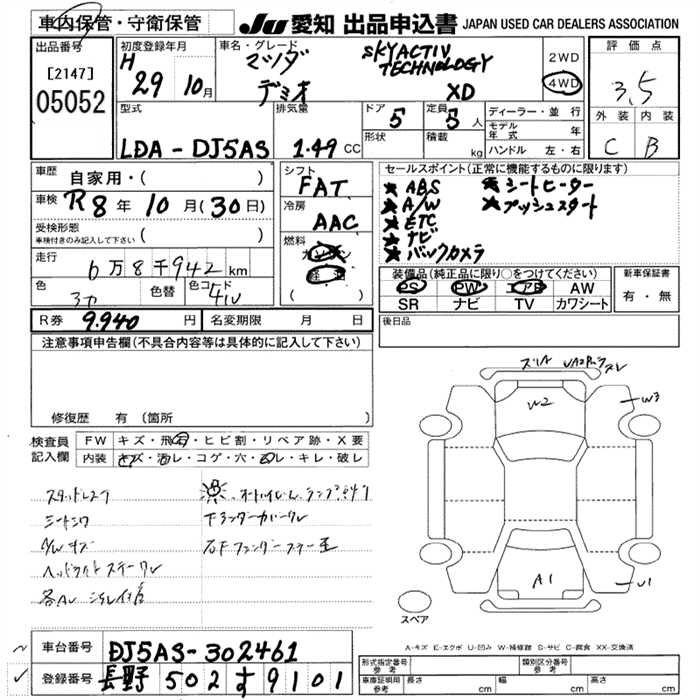 車内保管・守衛保管 JU 愛知 出品申込書 JAPAN USED CAR DEALERS ASSOCIATION
出品番号 [2147] 05052
初度登録年月 H 29 10月
車名・グレード マツダ デミオ SKYACTIV TECHNOLOGY XD
2WD
4WD
評価点 3.5
型式 LDA-DJ5AS
排気量 1.49 CC
ドア 5
定員 5人
形状
積載 kg
ディーラー・並行
モデル年式 年
ハンドル 左・右
外装 C
内装 B
車歴 自家用・( )
車検 R 8年10月(30日)
受検形態 車検付きのみ記入して下さい ( )
走行 6万8千942km
色
色替
色コード 41V
シフト FAT
冷房 AAC
燃料 ガソリン
軽油
( )
セールスポイント(正常に機能するものに限ります)
★ABS ★シートヒーター
★A/W ★プッシュスタート
★ETC
★ナビ
★バックカメラ
装備品(純正品に限り○をつけてください)
PS PW エアB AW
SR ナビ TV カワシート
新車保証書
有・無
R券 9.940円
名変期限 月 日
後日品
注意事項申告欄(不具合内容等は具体的に記入して下さい)
修復歴 有 (箇所
検査員記入欄
FW キズ・飛石・ヒビ割・リペア跡・X要
内装 キズ・汚レ・コゲ・穴・ヌレ・キレ・破レ
スタッドレスタ
シートシワ
A/W キズ
下ランダーカバークレ
W2
W3
A1
U1
スペア
A-キズ E-エクボ U-凹み W-補修跡 S-サビ C-腐食 XX-交換済
車台番号 DJ5AS-302461
登録番号 長野 502 す 9101
形式指定番号 参考
類別区分番号 参考
車庫証明用 参考
長さ cm
幅 cm
高さ cm